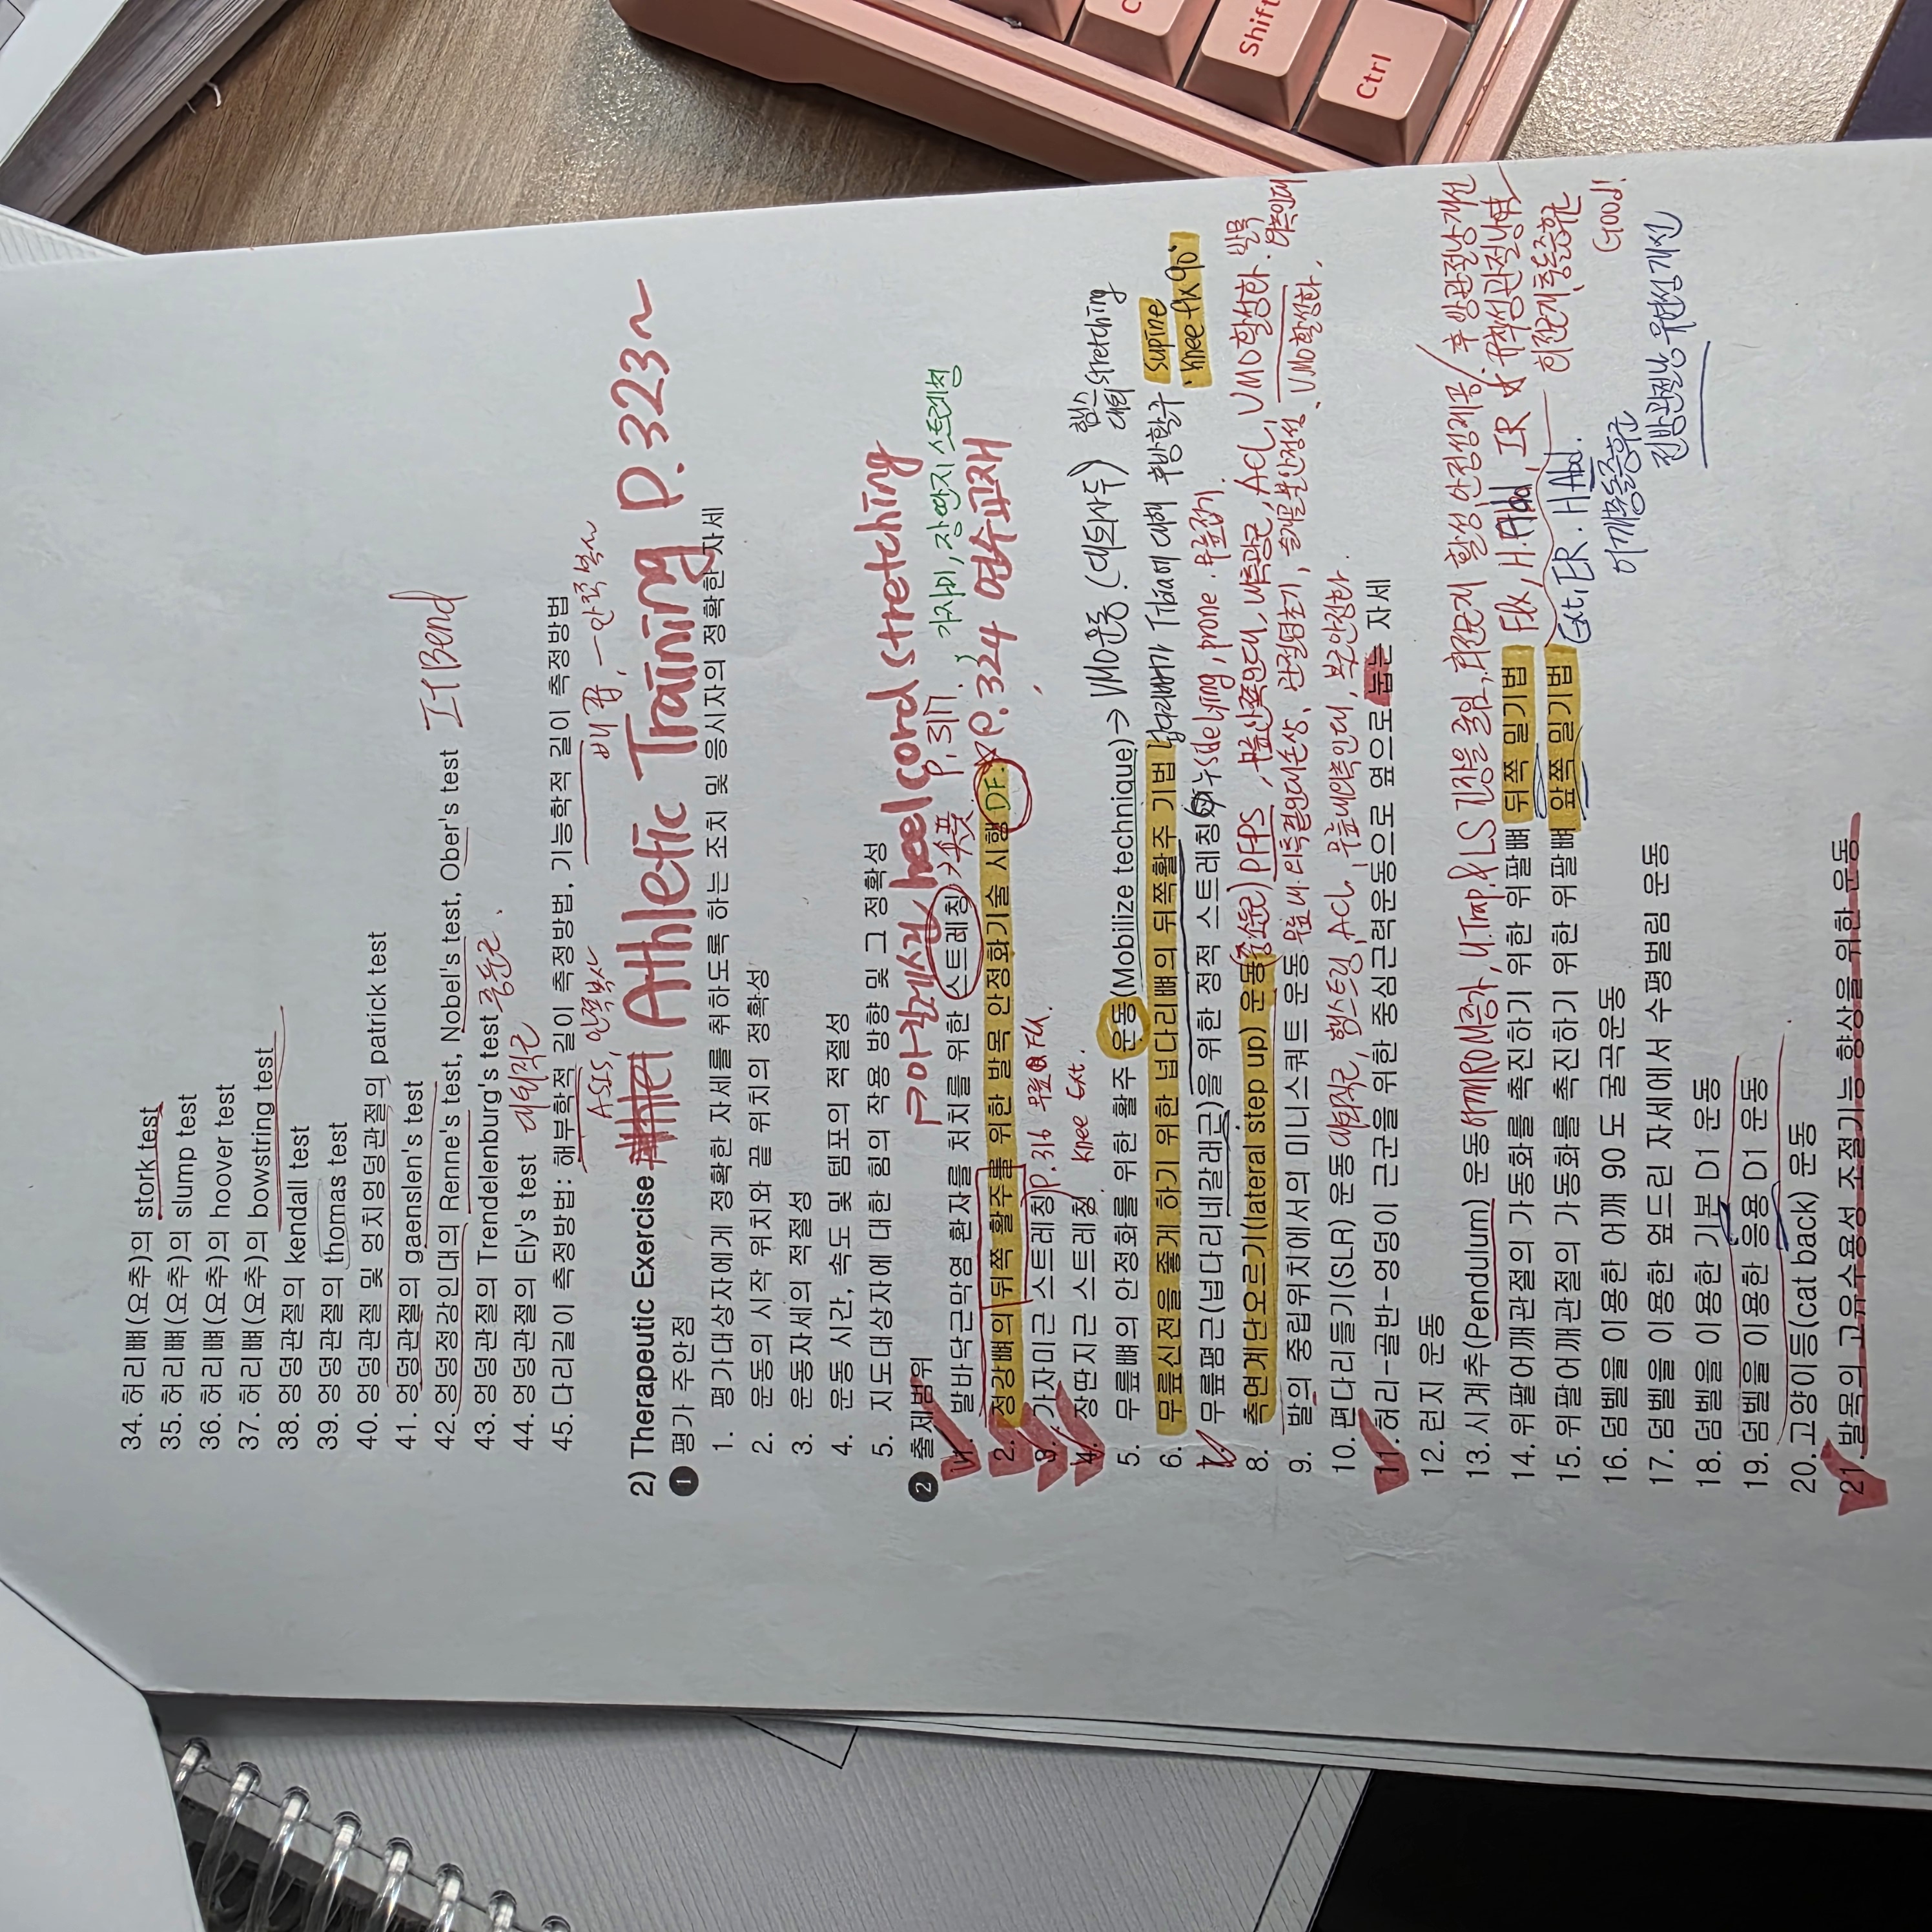 Shift
Ctrl
34. 허리뼈(요추)의 stork test
35. 허리뼈(요추)의 slump test
36. 허리뼈(요추)의 hoover test
37. 허리뼈(요추)의 bowstring test
38. 엉덩관절의 kendall test
39. 엉덩관절의 thomas test
40. 엉덩관절 및 엉치엉덩관절의 patrick test
41. 엉덩관절의 gaenslen's test
42. 엉덩정강인대의 Renne's test, Nobel's test, Ober's test IT Bend
43. 엉덩관절의 Trendelenburg's test 중둔근.
44. 엉덩관절의 Ely's test 대퇴직근
45. 다리길이 측정방법: 해부학적 길이 측정방법, 기능학적 길이 측정방법
ASIS, 안쪽복사
배꼽, ㅡ안쪽복사
2) Therapeutic Exercise Athletic Training P.323~
❶ 평가 주안점
1. 평가대상자에게 정확한 자세를 취하도록 하는 조치 및 응시자의 정확한 자세
2. 운동의 시작 위치와 끝 위치의 정확성
3. 운동자세의 적절성
4. 운동 시간, 속도 및 템포의 적절성
5. 지도대상자에 대한 힘의 작용 방향 및 그 정확성
❷ 출제범위
heel cord stretching
1. 발바닥근막염 환자를 처치를 위한 스트레칭 P.317. 가자미, 장딴지 스트레칭
2. 정강뼈의 뒤쪽 활주를 위한 발목 안정화기술 시행 DF. P.324 연수교재
3. 가자미근 스트레칭 P.316 무릎 Flx.
4. 장딴지근 스트레칭 Knee Ext.
5. 무릎뼈의 안정화를 위한 활주 운동(Mobilize technique) → VMO운동. (대퇴사두) 햄스 stretching
대퇴
6. 무릎신전을 좋게 하기 위한 넙다리뼈의 뒤쪽활주 기법 넙다리뼈가 Tibia에 대해 후방활주 supine
knee flx 90°
7. 무릎폄근(넙다리네갈래근)을 위한 정적 스트레칭 side lying, prone. 무릎잡기.
8. 측면계단오르기(lateral step up) 운동(중둔근) PFPS, 내측광근, ACL, VMO활성화.
9. 발의 중립위치에서의 미니스쿼트 운동 VMO활성화.
10. 편다리들기(SLR) 운동 대퇴직근, 햄스트링, ACL, 무릎내외측인대,
11. 허리-골반-엉덩이 근군을 위한 중심근력운동으로 옆으로 눕는 자세
12. 런지 운동
13. 시계추(Pendulum) 운동 어깨ROM증가, U.Trap & LS 긴장을 줄임, 회전근개 활성, 안정성제공 / 후방관절낭개선
14. 위팔어깨관절의 가동화를 촉진하기 위한 위팔뼈 뒤쪽 밀기법 Flx, H.Add, IR 유착성관절낭염
회전근개충돌증후군
Good!
15. 위팔어깨관절의 가동화를 촉진하기 위한 위팔뼈 앞쪽 밀기법 Ext, ER. H.Abd.
어깨충돌증후군
전방관절낭 유연성개선
16. 덤벨을 이용한 어깨 90도 굴곡운동
17. 덤벨을 이용한 엎드린 자세에서 수평벌림 운동
18. 덤벨을 이용한 기본 D1 운동
19. 덤벨을 이용한 응용 D1 운동
20. 고양이등(cat back) 운동
21. 발목의 고유수용성 조절기능 향상을 위한 운동